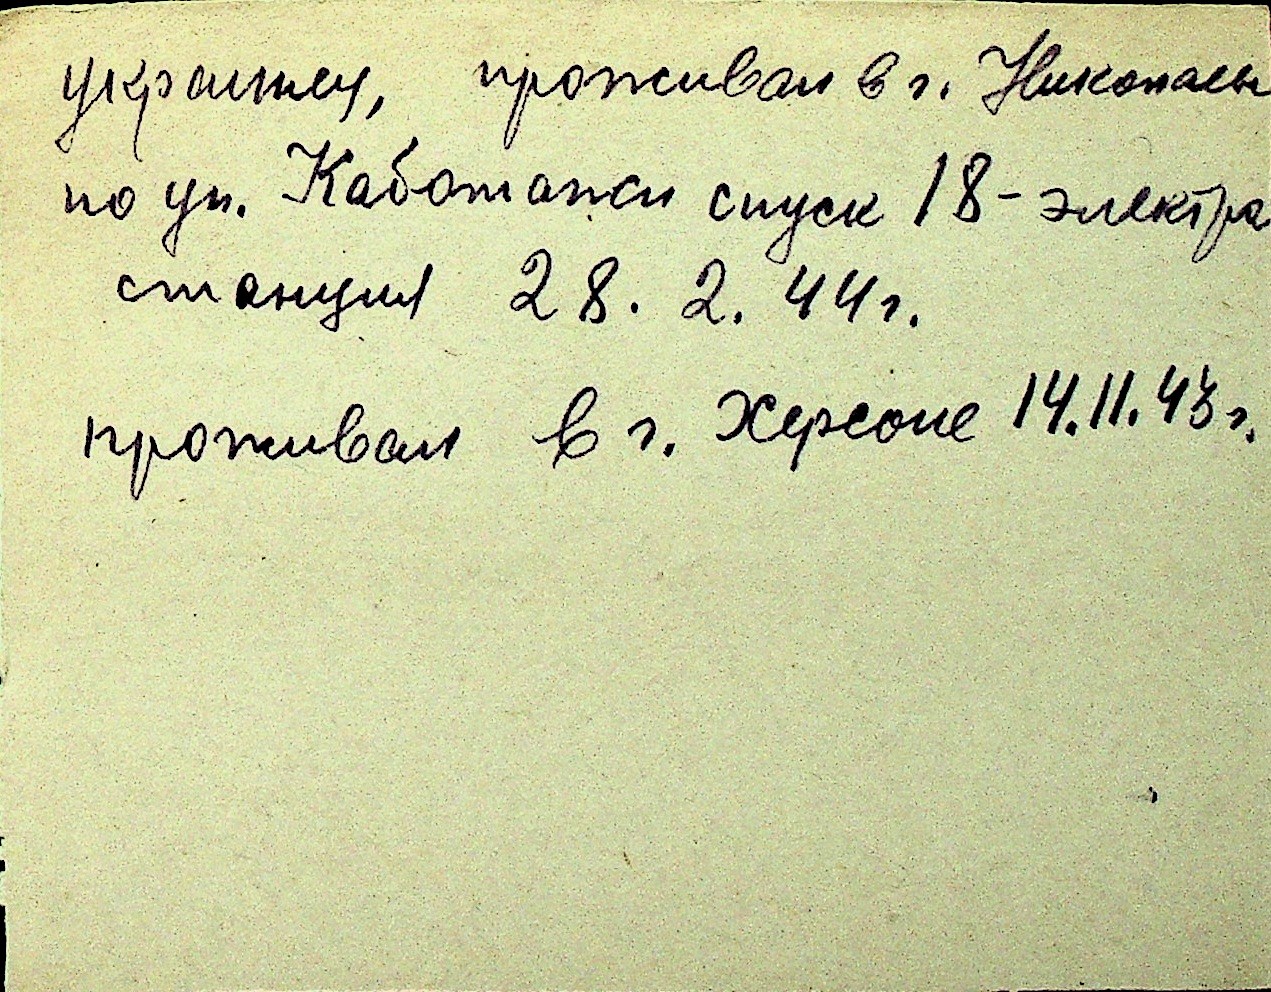 украинец, проживал в г. Николаев
по ул. Каботажн спуск 18 - электра
станция 28. 2. 44 г.
проживал в г. Херсоне 14.11.43 г.